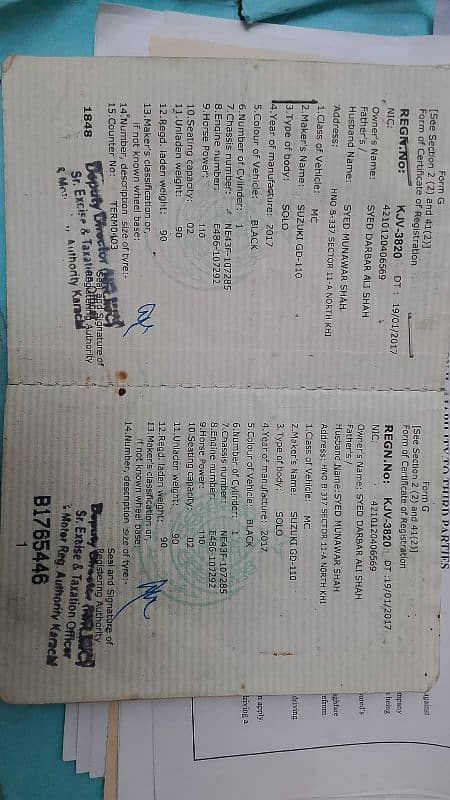 Form G
[See Section 2 (2) and 41(2)]
Form of Certificate of Registration
REGN.No: KJV-3820 DT : 19/01/2017
NIC: 4210120406569
Owner's Name: SYED DARBAR ALI SHAH
Father's /
Husband Name: SYED MUNAWAR SHAH
Address: HNO B-337 SECTOR 11-A NORTH KHI
1.Class of Vehicle: MC
2.Maker's Name: SUZUKI GD-110
3.Type of body: SOLO
4.Year of manufacture: 2017
5.Colour of Vehicle: BLACK
6.Number of Cylinder: 1
7.Chassis number: NE43F-107285
8.Engine number: E486-107292
9.Horse Power: 110
10.Seating capacity: 02
11.Unladen weight: 90
12.Regd. laden weight: 90
13.Maker's classification or,
if not known wheel base:
14.Number, description size of tyre:-
15.Counter No: TERMO403
Seal and Signature of
Registering Authority
1848
Deputy Director
Sr. Excise & Taxation Officer
Authority Karachi
Form G
[See Section 2 (2) and 41(2)]
Form of Certificate of Registration
REGN.No: KJV-3820 DT :19/01/2017
NIC: 4210120406569
Owner's Name: SYED DARBAR ALI SHAH
Father's
Husband Name:SYED MUNAWAR SHAH
Address: HNO B 337 SECTOR 11-A NORTH KHI
1.Class of Vehicle: MC
2.Maker's Name: SUZUKI GD-110
3.Type of body: SOLO
4.Year of manufacture: 2017
5.Colour of Vehicle: BLACK
6.Number of Cylinder: 1
7.Chassis number: NE43F-107285
8.Engine number: E486-107292
9.Horse Power: 110
10.Seating capacity: 02
11.Unladen weight: 90
12.Regd. laden weight: 90
13.Maker's classification or,
if not known wheel base:
14.Number, description size of tyre:-
Seal and Signature of
Registering Authority
Deputy Director
Sr. Excise & Taxation Officer
Motor Reg. Authority Karachi
B1765446
1
TO THIRD PARTIES
against
mpany
being
driving
n apply.
driving a